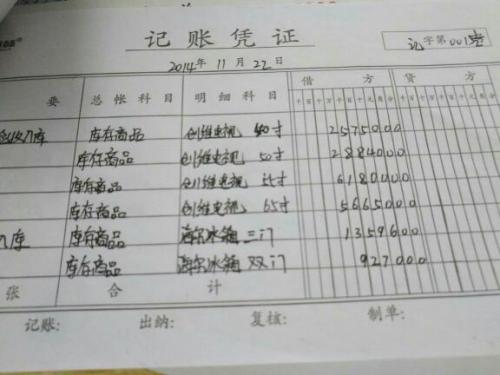 记账凭证
记字第001号
2014年11月22日
要 总帐科目 明细科目 借方 贷方
千百十万千百十元角分 千百十万千百十元角分
入库 库存商品 创维电视 40寸 2575000
库存商品 创维电视 50寸 2884000
库存商品 创维电视 55寸 6180000
库存商品 创维电视 65寸 5665000
入库 库存商品 海尔冰箱 三门 1359600
库存商品 海尔冰箱 双门 927000
张 合计
记账: 出纳: 复核: 制单: